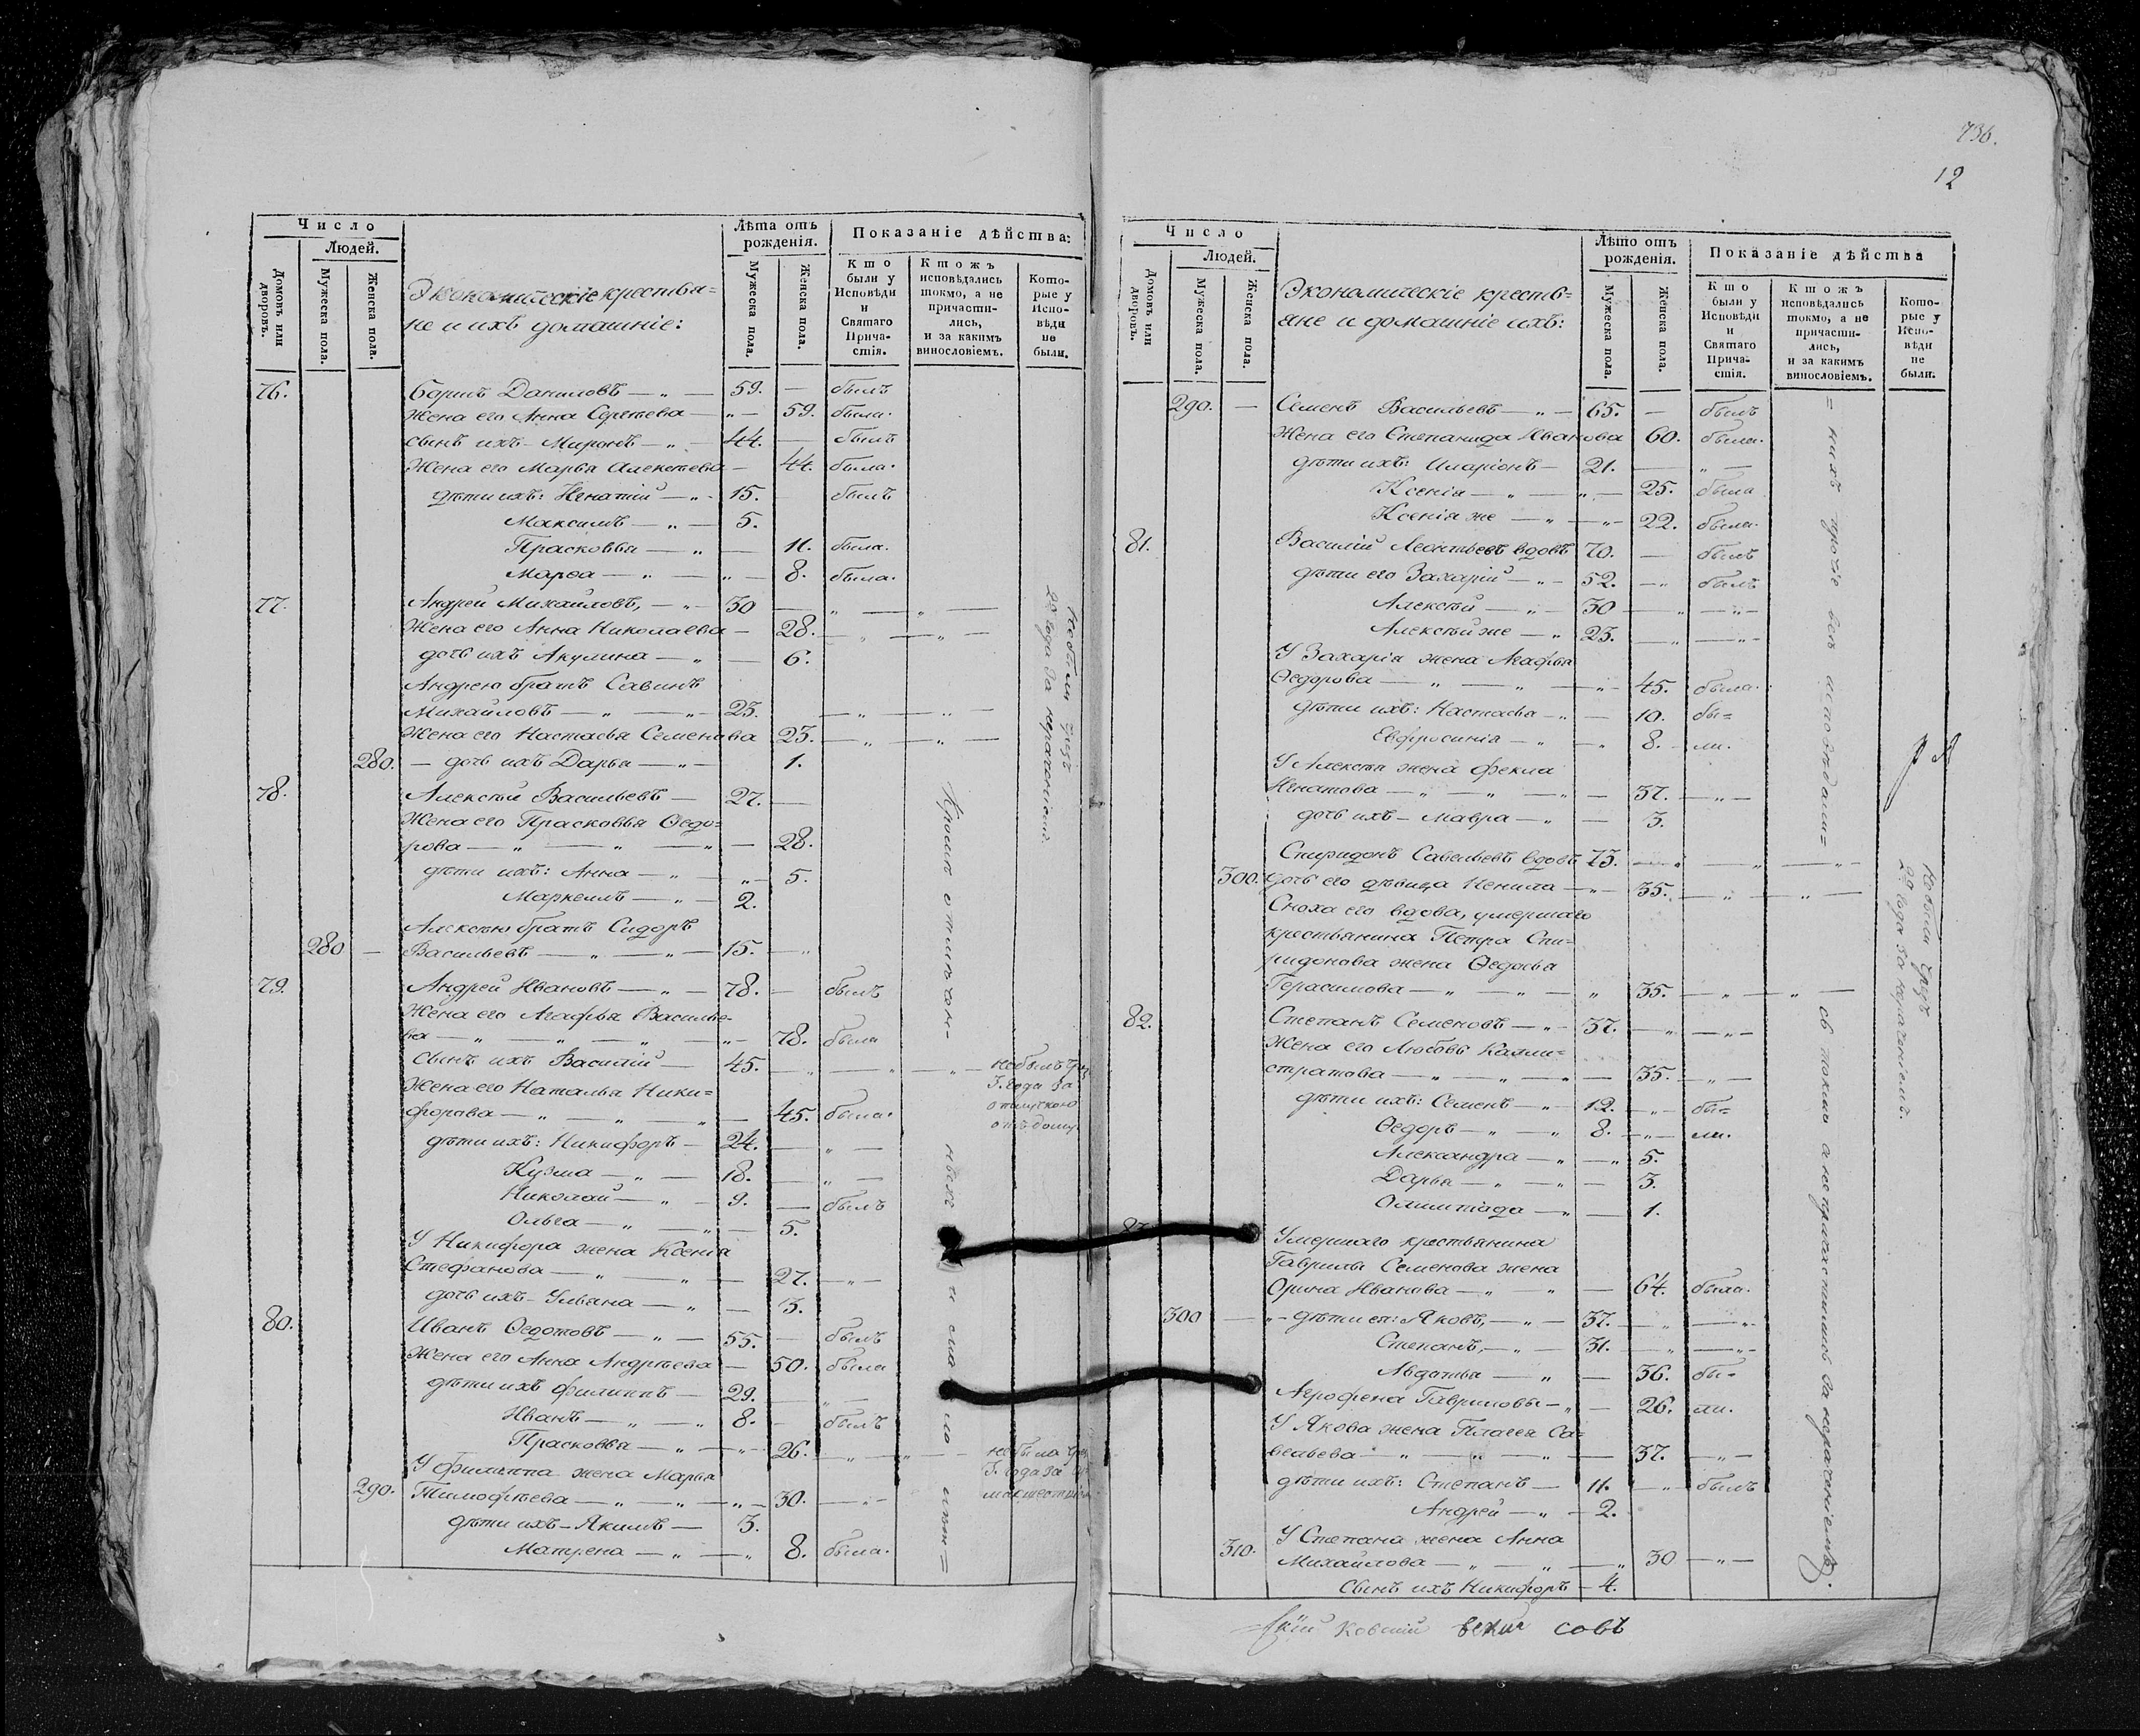 Число
Людей.
Домовъ или дворовъ.
Мужеска пола.
Женска пола.
Экономическіе крестья=
не и ихъ домашніе:
Лѣта отъ рожденія.
Мужеска пола.
Женска пола.
Показаніе дѣйства:
Кто были у Исповѣди и Святаго Прича-стія.
Ктожъ исповѣдались токмо, а не причасти-лись, и за какимъ винословіемъ.
Кото-рые у Испо-вѣди не были.
76. Борисъ Даниловъ — „ — 59. — былъ
Жена его Анна Сергѣева — „ — 59. была.
сынъ ихъ – Миронъ — „ — 44. — былъ
Жена его Марья Алексѣева — 44. была.
дѣти ихъ: Игнатій — „ - 15. былъ
Максимъ — „ — 5.
Прасковья — „ — 11. была.
Марѳа — „ — „ — 8. была.
77. Андрей Михайловъ, — „ — 30 — „ — „ —
Жена его Анна Николаева — 28. — „ — „ —
дочь ихъ Акулина — „ — 6.
Андрею братъ Савинъ
Михайловъ — „ — „ — 23. — „ — „ —
Жена его Настасья Семенова 23. — „ — „ —
280. — дочь ихъ Дарья — „ — 1.
78. Алексѣй Васильевъ — 27. —
Жена его Прасковья Ѳедо=
рова — „ — „ — „ — 28.
дѣти ихъ: Анна — „ — „ — 5.
Маркеллъ — „ — 2.
Алексѣю братъ Сидоръ
280 — Васильевъ — „ — „ — 15. — „
79. Андрей Ивановъ — „ — 78. — былъ
Жена его Агафья Василье-
ва — „ — „ — „ — „ — 78. была
сынъ ихъ Василій — 45. — „ — „ — „ — небылъ
3. года за
отлучкою
отъ дому.
Жена его Наталья Ники=
форова — „ — „ — „ — 45. была.
дѣти ихъ: Никифоръ — 24. — „ —
Кузма — „ — 18. — „ —
Николай — „ — 9. — былъ
Ольга — „ — „ — 5.
У Никифора жена Ксенія
Стефанова — „ — „ — 27. — „ —
дочь ихъ – Ульяна — „ — 3.
80. Иванъ Ѳедотовъ — „ — 55. — былъ
Жена его Анна Андрѣева — 50. была
дѣти ихъ Филиппъ — 29. — „ —
Иванъ — „ — „ 8. — былъ
Прасковья — „ — „ — 26. — „ — „ — небыла
3. года за
У Филиппа жена Марья
290. Тимофѣева — „ — „ — „ — 30. — „ -
дѣти ихъ – Якимъ — 3.
Матрена — „ — „ 8. была.
Небыли чрезъ
2. года за нераченіемъ.
Кромѣ отмѣчен-
ныхъ и сма ло лѣт=
736.
12
Число
Людей.
Домовъ или дворовъ.
Мужеска пола.
Женска пола.
Экономическіе кресть=
яне и домашніе ихъ:
Лѣто отъ рожденія.
Мужеска пола.
Женска пола.
Показаніе дѣйства
Кто были у Исповѣди и Святаго Прича-стія.
Ктожъ исповѣдались токмо, а не причасти-лись, и за какимъ винословіемъ.
Кото-рые у Испо-вѣди не были.
290. — Семенъ Васильевъ — „ — 65. — былъ
Жена его Степанида Иванова 60. была.
дѣти ихъ: Иларіонъ — 21. — „ —
Ксенія — „ — „ — 25. была
Ксенія же — „ — „ - 22. была.
81. Василій Леонтьевъ вдовъ 70. — былъ
дѣти его Захарій — „ — 52. — „ былъ
Алексѣй — „ — 30 — „ — „ -
Алексѣй же — „ 23. — „ — „ -
У Захарія жена Агафья
Ѳедорова — „ — „ — „ - 45. была.
дѣти ихъ: Настасья — „ — 10. бы=
Евфросинія — „ — „ 8. – ли.
У Алексѣя жена Фекла
Игнатова — „ — „ — „ — 37. — „ —
дочь ихъ – Мавра — „ — 3.
Спиридонъ Савельевъ вдовъ 73. — „ — „ — „ -
300. дочь его дѣвица Ненила — „ — 35. — „ — „ —
Сноха его вдова, умершаго
крестьянина Петра Спи=
ридонова жена Ѳедосья
Герасимова — „ — „ — „ 35. — „ — „ —
82. Степанъ Семеновъ — „ - 37. — „ — „ -
Жена его Любовь Калли=
стратова — „ — „ — „ — 35. — „ —
дѣти ихъ: Семенъ — „ — 12. — „ — бы=
Ѳедоръ — „ — „ 8. — „ — ли.
Александра — „ — „ 5.
Дарья — „ — „ — 3.
Олимпіада — „ — 1.
83. Умершаго крестьянина
Гаврилы Семенова жена
Орина Иванова — „ — „ — 64. была.
300 — „ - дѣти ея: Яковъ, — „ — 37. — „ — „ -
Степанъ, — „ — 31. — „ — „ -
Авдотья — „ — 36. бы=
Агрофена Гаврилова — „ — 26. ли.
У Якова жена Плагея Са=
вельева — „ — „ — „ — 37. — „ —
дѣти ихъ: Степанъ — 11. — „ — былъ
Андрей — „ — 2.
У Степана жена Анна
310. Михайлова — „ — „ — „ 30 — „ —
сынъ ихъ Никифоръ — 4.
= нихъ прочіе всѣ исповѣдали=
сь токмо а непричастились за нераченіемъ.
Небыли чрезъ
2. года за нераченіемъ.